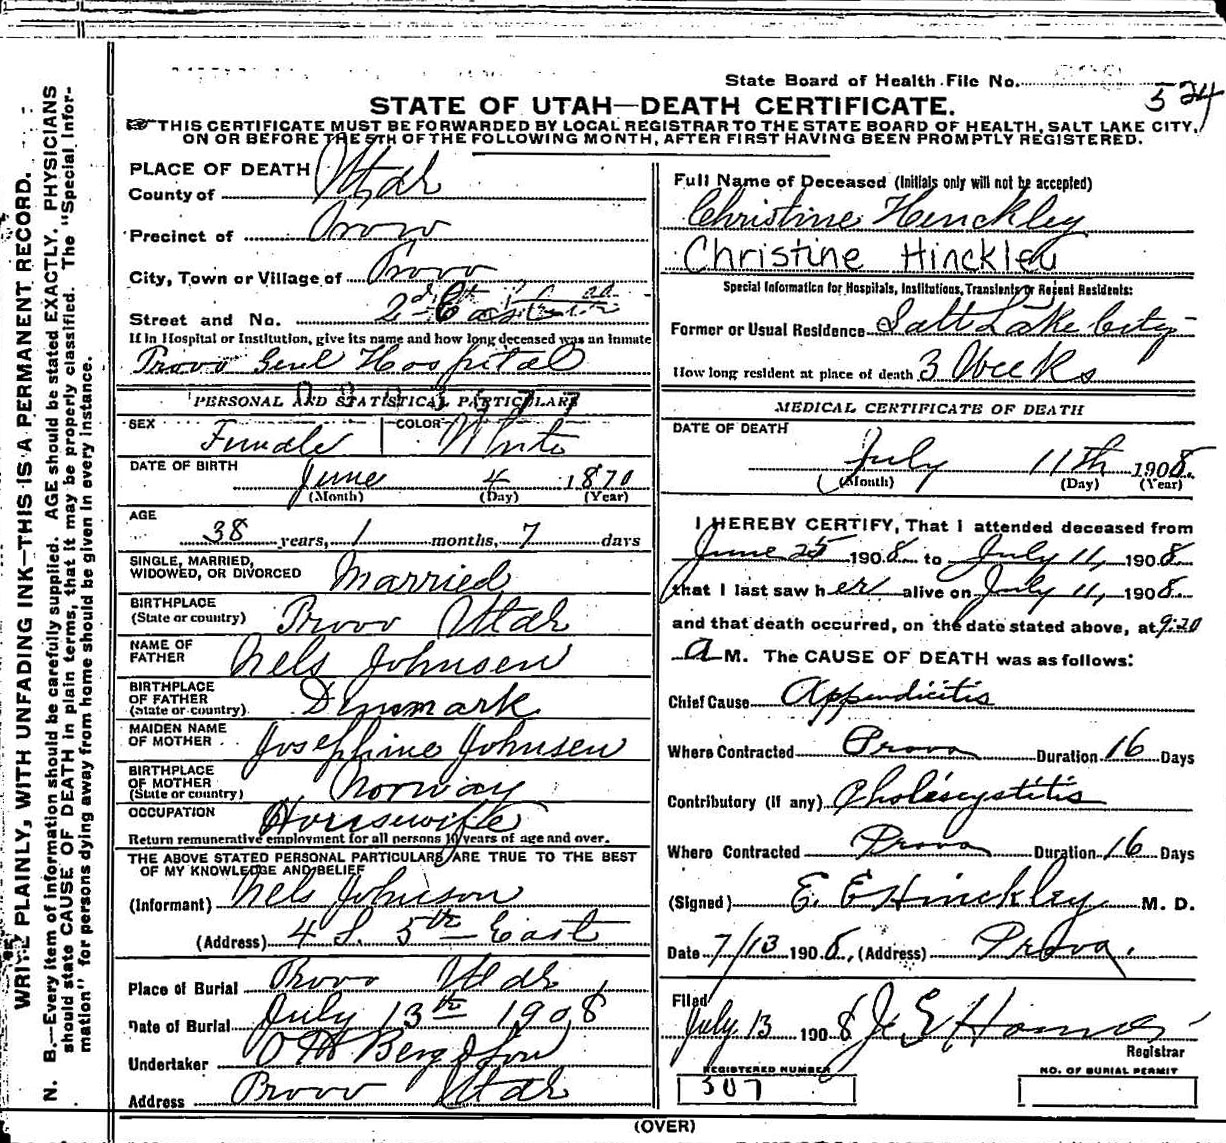 State Board of Health File No.
524
STATE OF UTAH—DEATH CERTIFICATE.
THIS CERTIFICATE MUST BE FORWARDED BY LOCAL REGISTRAR TO THE STATE BOARD OF HEALTH, SALT LAKE CITY,
ON OR BEFORE THE 5TH OF THE FOLLOWING MONTH, AFTER FIRST HAVING BEEN PROMPTLY REGISTERED.
WRITE PLAINLY, WITH UNFADING INK—THIS IS A PERMANENT RECORD.
N. B.—Every item of information should be carefully supplied. AGE should be stated EXACTLY. PHYSICIANS
should state CAUSE OF DEATH in plain terms, that it may be properly classified. The "Special Infor-
mation" for persons dying away from home should be given in every instance.
PLACE OF DEATH
County of Utah
Precinct of Provo
City, Town or Village of Provo
Street and No. 2nd East
If in Hospital or Institution, give its name and how long deceased was an inmate
Provo Genl Hospital
PERSONAL AND STATISTICAL PARTICULARS
SEX Female COLOR White
DATE OF BIRTH
June 4 1870
(Month) (Day) (Year)
AGE
38 years, 1 months, 7 days
SINGLE, MARRIED,
WIDOWED, OR DIVORCED Married
BIRTHPLACE
(State or country) Provo Utah
NAME OF
FATHER Nels Johnsen
BIRTHPLACE
OF FATHER
(State or country) Denmark
MAIDEN NAME
OF MOTHER Josephine Johnsen
BIRTHPLACE
OF MOTHER
(State or country) Norway
OCCUPATION Housewife
Return remunerative employment for all persons 10 years of age and over.
THE ABOVE STATED PERSONAL PARTICULARS ARE TRUE TO THE BEST
OF MY KNOWLEDGE AND BELIEF
(Informant) Nels Johnson
(Address) 4 S. 5th East
Place of Burial Provo Utah
Date of Burial July 13th 1908
Undertaker O H Berg & Son
Address Provo Utah
Full Name of Deceased (Initials only will not be accepted)
Christine Hinckley
Christine Hinckley
Special Information for Hospitals, Institutions, Transients or Recent Residents:
Former or Usual Residence Salt Lake City
How long resident at place of death 3 Weeks
MEDICAL CERTIFICATE OF DEATH
DATE OF DEATH
July 11th 1908
(Month) (Day) (Year)
I HEREBY CERTIFY, That I attended deceased from
June 25 1908 to July 11, 1908
that I last saw her alive on July 11, 1908
and that death occurred, on the date stated above, at 9:20
A M. The CAUSE OF DEATH was as follows:
Chief Cause Appendicitis
Where Contracted Provo Duration 16 Days
Contributory (if any) Cholecystitis
Where Contracted Provo Duration 16 Days
(Signed) E. E Hinckley M. D.
Date 7/13 1908, (Address) Provo.
Filed
July 13 1908 J E
Registrar
REGISTERED NUMBER
307
NO. OF BURIAL PERMIT
(OVER)